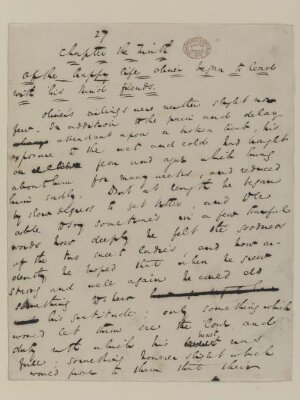 27
Chapter the ninth
Of the happy life Oliver began to lead
with his kind friends.
Oliver's ailings were neither slight nor
few. In addition to the pain and delay
attendant upon a broken limb, his
exposure to the wet and cold had brought
on fever and ague which hung
about him for many weeks, and reduced
him sadly. But at length he began
by slow degrees to get better, and to be
able to say sometimes in a few tearful
words how deeply he felt the goodness
of the two sweet ladies and how ar-
dently he hoped that when he grew
strong and well again he could do
something to show
his gratitude: only something which
would let them see the love and
duty with which his breast was
full: something however slight which
would prove to them that their